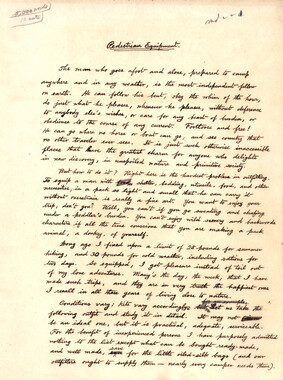 Pedestrian Equipment
The man who goes afoot and alone, prepared to camp
anywhere and in any weather, is the most independent fellow
on earth. He can follow his bent, obey the whim of the hour,
do just what he pleases, whenever he pleases, without deference
to anybody else's wishes, or care for any beast of burden, or
obedience to the course of any Footloose and free!
He can go where no horse or boat can go, and see country that
no other traveler ever sees. It is just such otherwise inaccessible
places that have the greatest charm for anyone who delights
in new discovery, in unspoiled nature and primitive ways.
But how to do it? Right here is the hardest problem in outfitting.
To equip a man with shelter, bedding, utensils, food, and other
necessities, in a pack so light and small that he can carry it
without overstrain is really a fine art. You want to enjoy your
trip, don't you? Well, you can't if you go sweating and chafing
under a peddler's burden. You can't enjoy wild scenery and backwoods
characters if all the time conscious that you are making a pack
animal, a donkey, of yourself.
Long ago I fixed upon a limit of 25 pounds for summer
hiking, and 30 pounds for cold weather, including rations for
two days. So equipped, I got pleasure instead of toil out
of my lone adventures. Many's the day, the week, that I have
made such trips, and they are in very truth the happiest ones
I recall in all these years of living close to nature.
Conditions vary; kits vary accordingly. But let us take the
following outfit and study it in detail. It may not
be an ideal one, but it is practical, adequate, serviceable.
For the benefit of inexperienced persons I have purposely admitted
nothing to the list except what can be bought ready made,
and note made for the little oiled-silk bags (and our
outfitters ought to supply them — nearly every camper needs them).